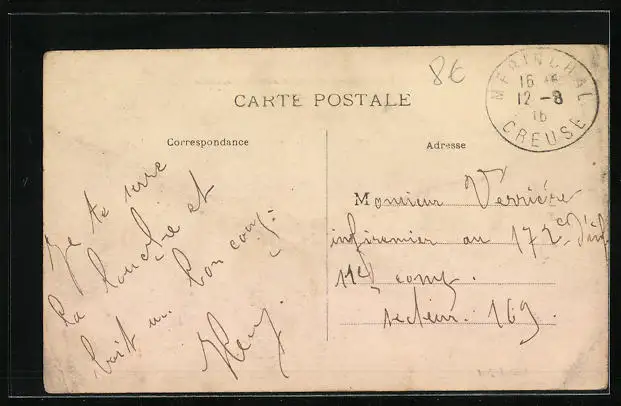 8€
CARTE POSTALE
MERINCHAL
16
12 - 8
16
CREUSE
Correspondance
Je te serre
la louche et
boit un bon coup.
Adresse
Monsieur Verrière
infirmier au 172e d'inf
11e comp.
secteur. 169.